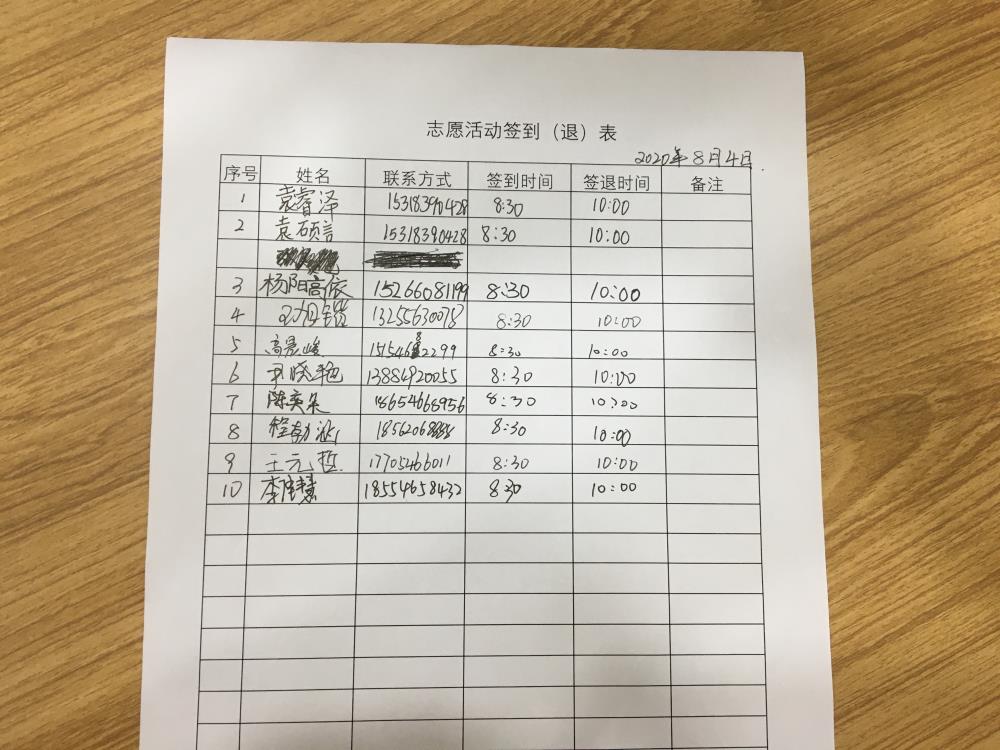 志愿活动签到（退）表
2020年8月4日.
序号 姓名 联系方式 签到时间 签退时间 备注
1 袁睿泽 15318390428 8:30 10:00
2 袁硕言 15318390428 8:30 10:00
3 杨阳高依 15266081199 8:30 10:00
4 13255630075 8:30 10:00
5 高晨峻 8:30 10:00
6 13884920055 8:30 10:00
7 陈奕朵 18654668956 8:30 10:00
8 8:30 10:00
9 王元哲 17705466011 8:30 10:00
10 18554658432 8:30 10:00